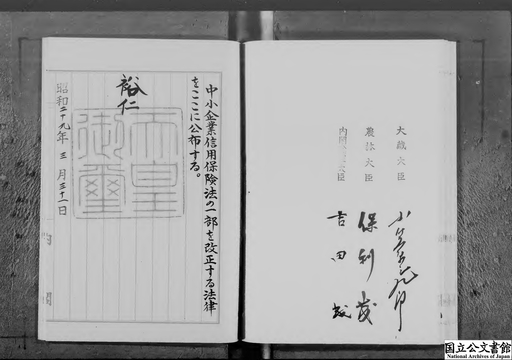 大蔵大臣 小笠原三九郎
農林大臣 保利茂
内閣総理大臣 吉田茂
中小企業信用保険法の一部を改正する法律
をここに公布する。
裕仁
天皇
御璽
昭和二十九年三月三十一日
国立公文書館
National Archives of Japan